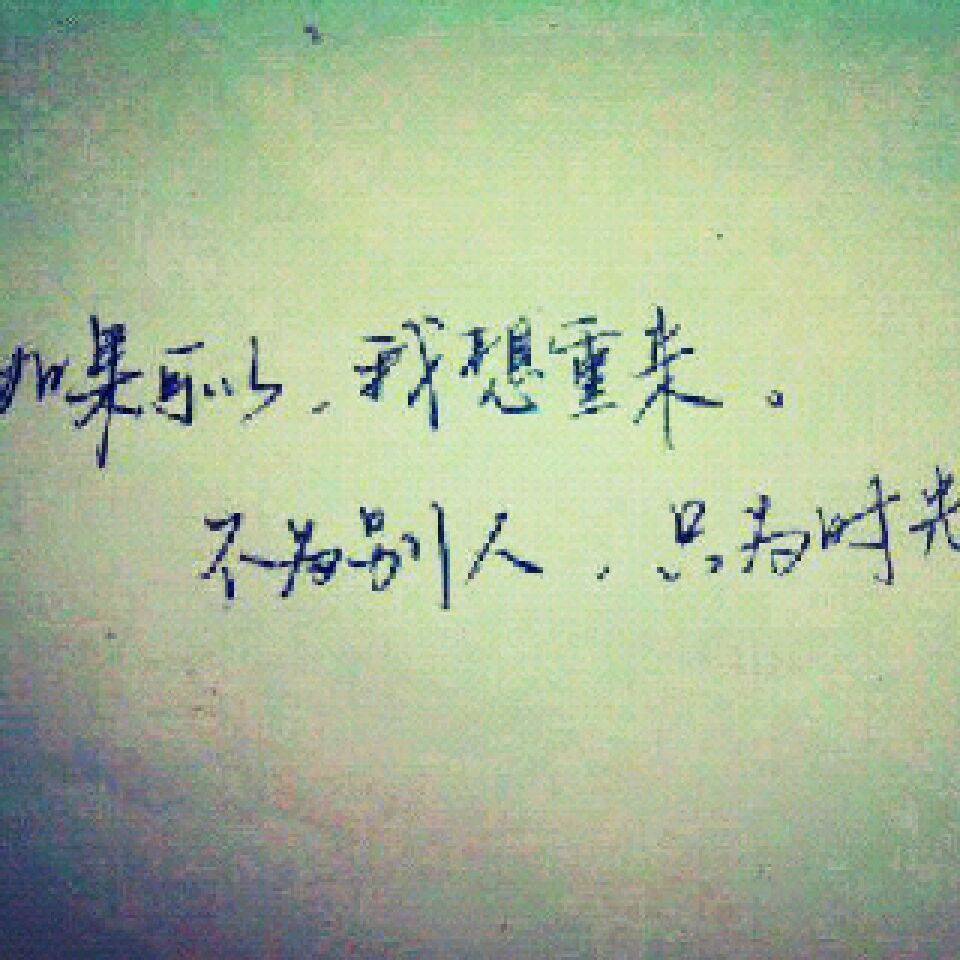 如果可以，我想重来。
不为别人，只为时光